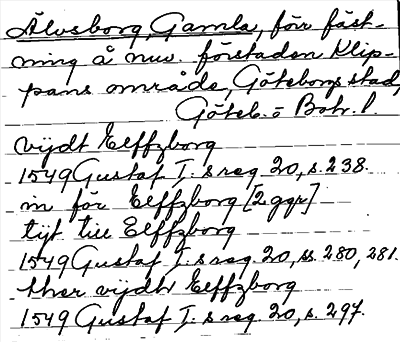 Älvsborg, Gamla, förr fäst-
ning å nuv. förstaden Klip-
pans område, Göteborgs stad,
Göteb. o Boh. l.
vijdt Elffzborg
1549 Gustaf I:s reg. 20, s. 238.
in för Elffzborg [2 ggr]
tijt till Elffzborg
1549 Gustaf I:s reg. 20, ss. 280, 281.
ther vijdh Elffzborg
1549 Gustaf I:s reg. 20, s. 297.